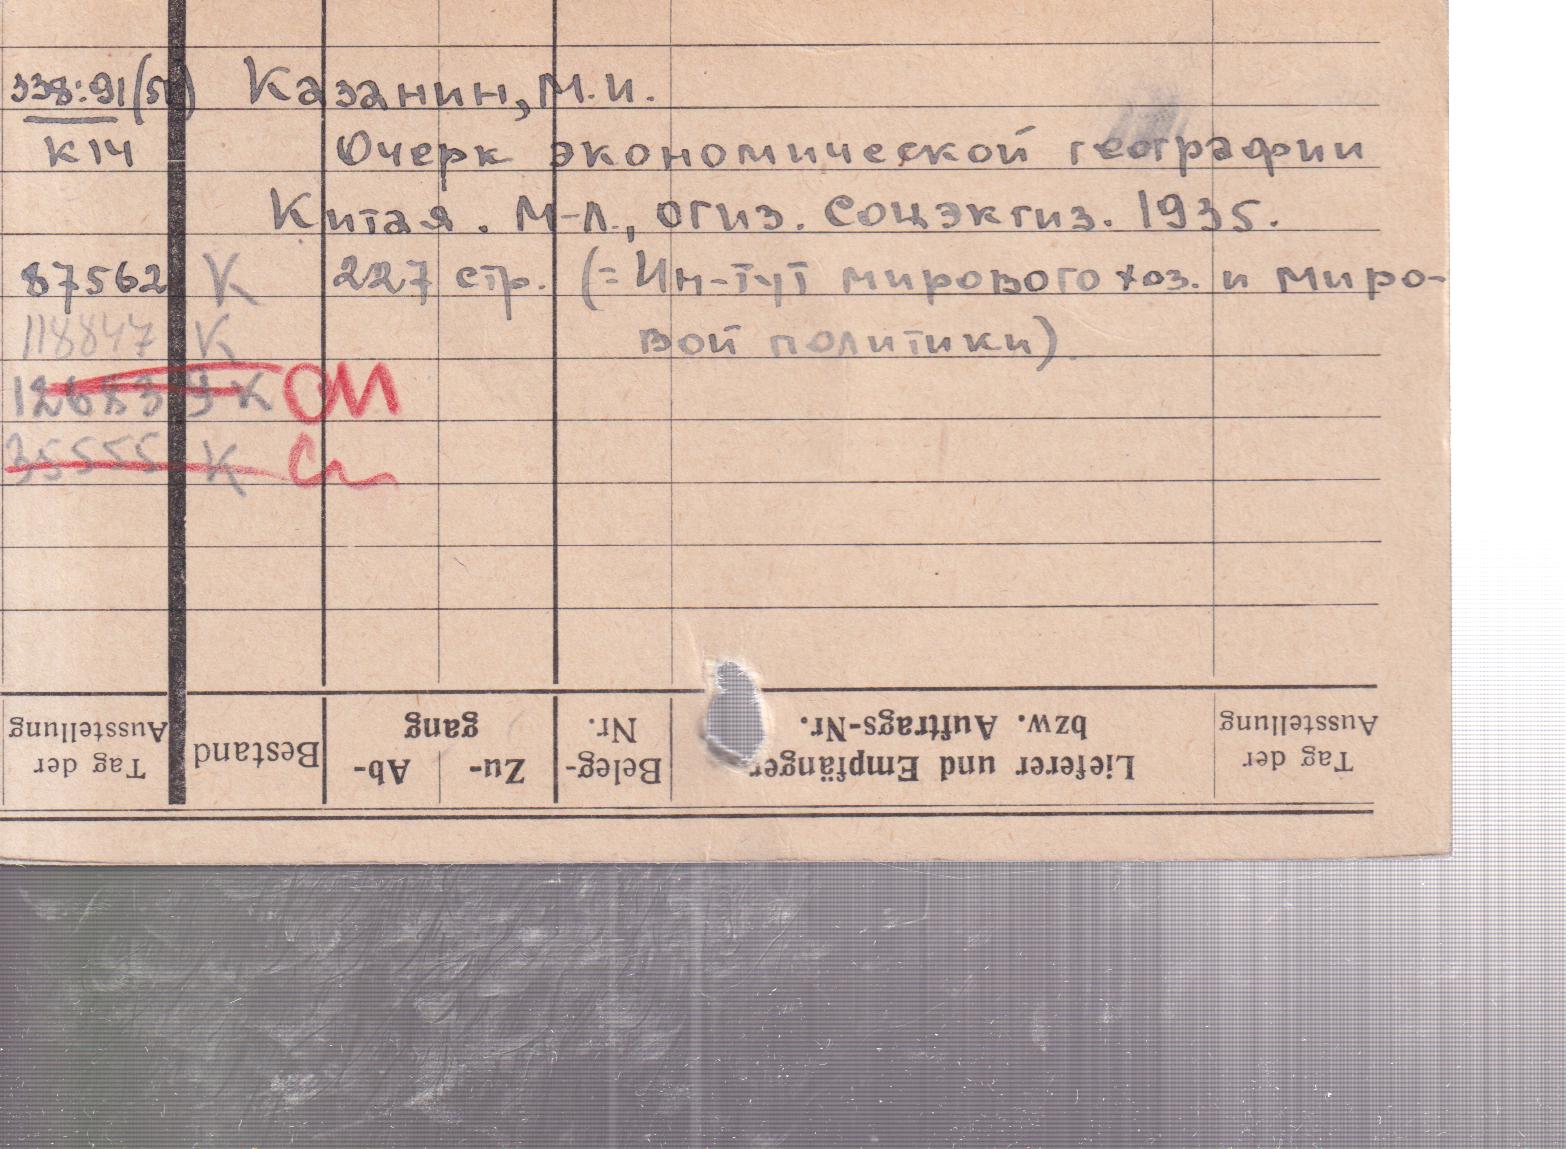 338:91(51) Казанин, М.И.
К14 Очерк экономической географии
Китая. М-Л., ОГИЗ. Соцэкгиз. 1935.
87562 К 227 стр. (= Ин-тут мирового хоз. и миро-
118847 К вой политики)
К ОИ
35555 К
Tag der Ausstellung
Bestand
Zu- Ab-
gang
Beleg-
Nr.
Lieferer und Empfänger
bzw. Auftrags-Nr.
Tag der
Ausstellung